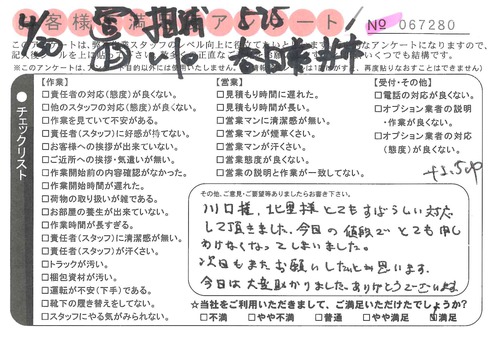 お客様不満足アンケート
№ 067280
【作業】
□責任者の対応(態度)が良くない。
□他のスタッフの対応(態度)が良くない。
□作業を見ていて不安がある。
□責任者(スタッフ)に好感が持てない。
□お客様への挨拶が出来ていない。
□ご近所への挨拶・気遣いが無い。
□作業開始前の内容確認がなかった。
□作業開始時間が遅れた。
□荷物の取り扱いが雑である。
□お部屋の養生が出来ていない。
□作業時間が長すぎる。
□責任者(スタッフ)に清潔感が無い。
□責任者(スタッフ)が汗くさい。
□トラックが汚い。
□梱包資材が汚い。
□運転が不安(下手)である。
□靴下の履き替えをしてない。
□スタッフにやる気がみられない。
チェックリスト
【営業】
□見積もり時間に遅れた。
□見積もり時間が長い。
□営業マンに清潔感が無い。
□営業マンが煙草くさい。
□営業マンが汗くさい。
□営業態度が良くない。
□営業の説明と作業が一致してない。
【受付・その他】
□電話の対応が良くない。
□オプション業者の説明
・作業が良くない。
□オプション業者の対応
(態度)が良くない。
その他、ご意見・ご要望等ありましたらお書き下さい。
川口様、北里様とてもすばらしい対応
して頂きました。今日の値段で とても申し
わけなくなってしまいました。
次回もまたお願いしたいと思います。
今日は大変助かりました。ありがとうございました
☆当社をご利用いただきまして、ご満足いただけたでしょうか?
□不満 □やや不満 □普通 □やや満足 ☑満足